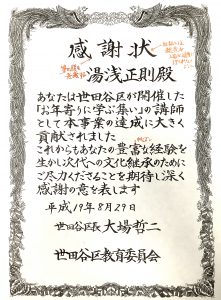 感謝状
湯浅正則殿
あなたは世田谷区が開催した
「お年寄りに学ぶ集い」の講師
として本事業の達成に大きく
貢献されました
これからもあなたの豊富な経験を
生かし次代への文化継承のために
ご尽力くださることを期待し深く
感謝の意を表します
平成19年8月29日
世田谷区長 大場哲二
世田谷区教育委員会